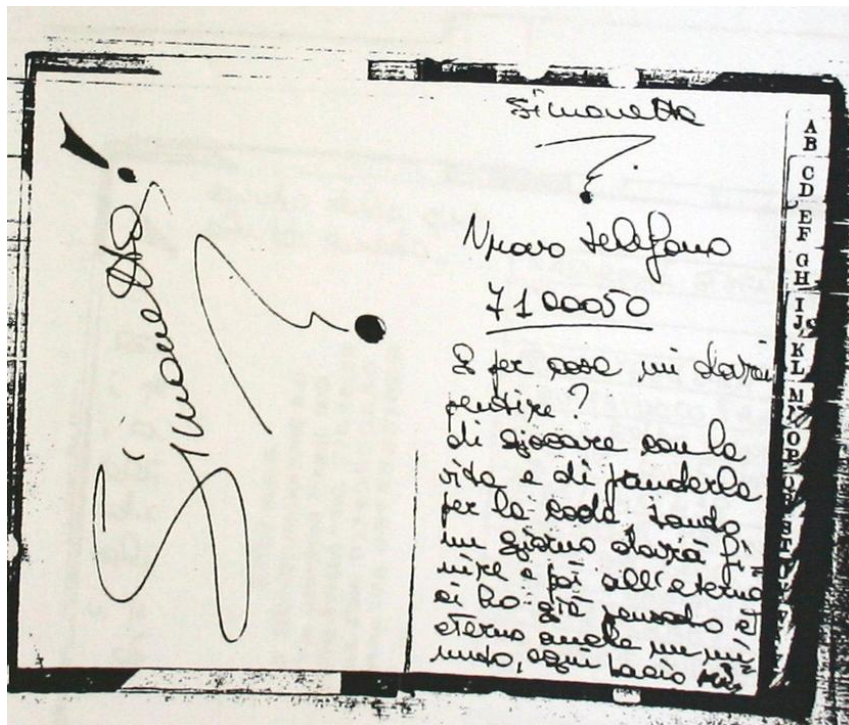 Simonetta!
Simonetta
Nuovo telefono
7100050
E per cosa mi dovrei
pentire?
di giocare con la
vita e di prenderla
per la coda, tanto
un giorno dovrà fi
nire e poi all'eterno
ci ho già pensato è
eterno anche un mi
nuto, ogni bacio
AB
CD
EF
GH
IJ
KL
MN
OP
QR
ST